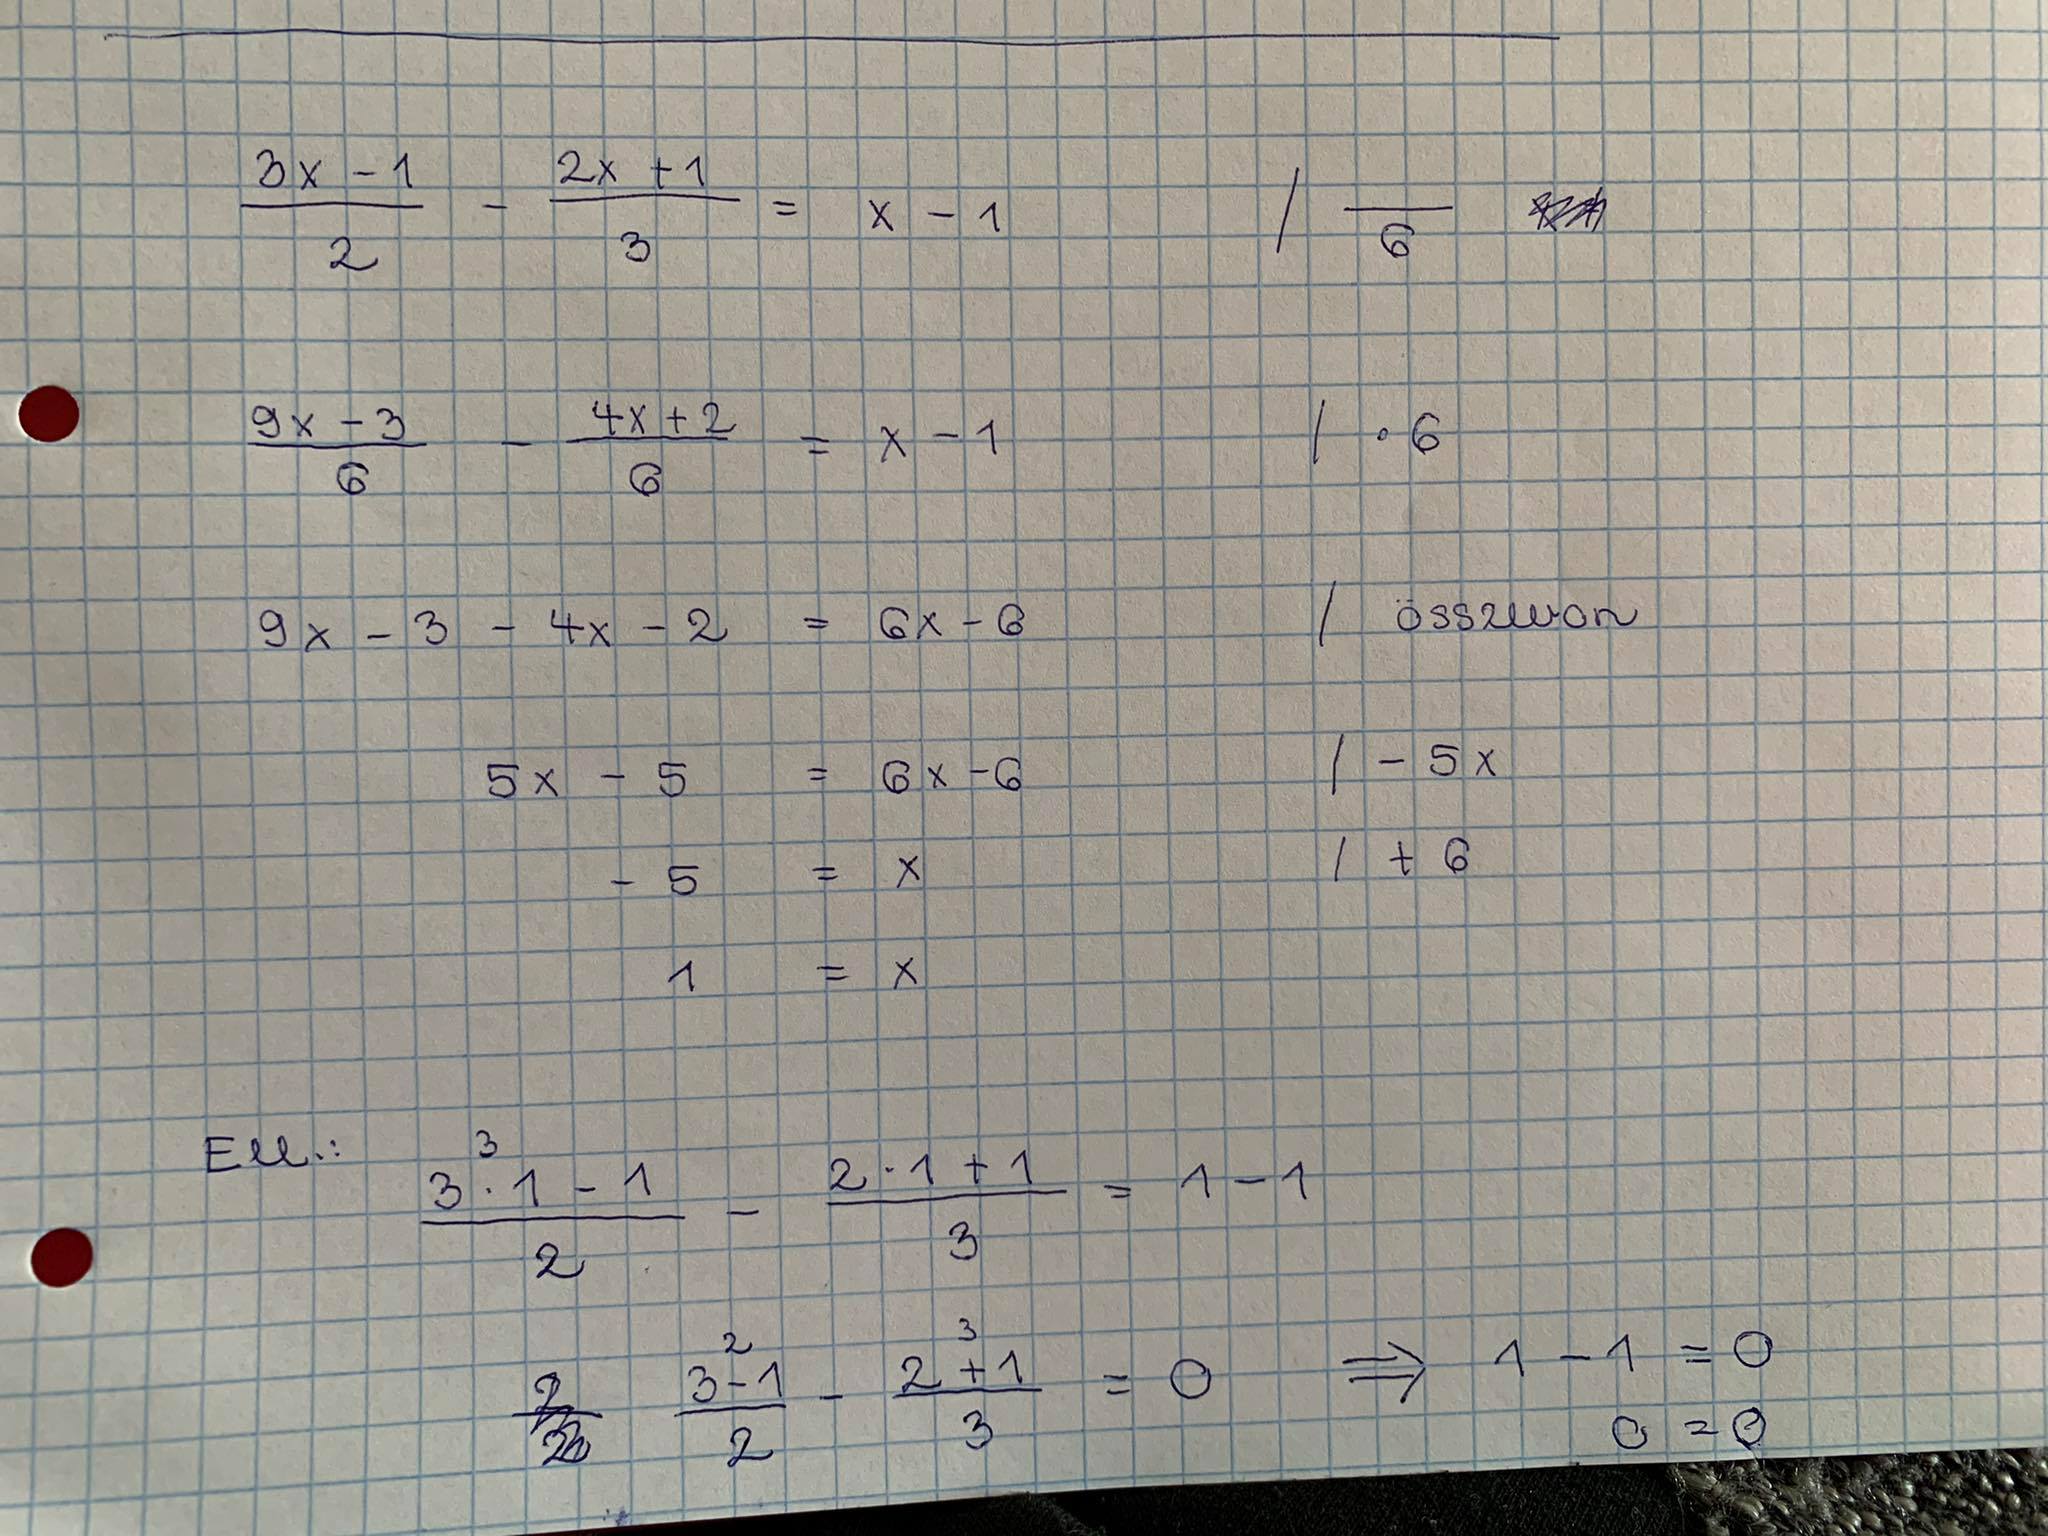 (3x - 1)/2 - (2x + 1)/3 = x - 1 / —/6
(9x - 3)/6 - (4x + 2)/6 = x - 1 / · 6
9x - 3 - 4x - 2 = 6x - 6 / összevon
5x - 5 = 6x - 6 / - 5x
- 5 = x / + 6
1 = x
Ell.: (3 · 1 - 1)/2 - (2 · 1 + 1)/3 = 1 - 1
3
(3 - 1)/2 - (2 + 1)/3 = 0 ⇒ 1 - 1 = 0
2 3
0 = 0